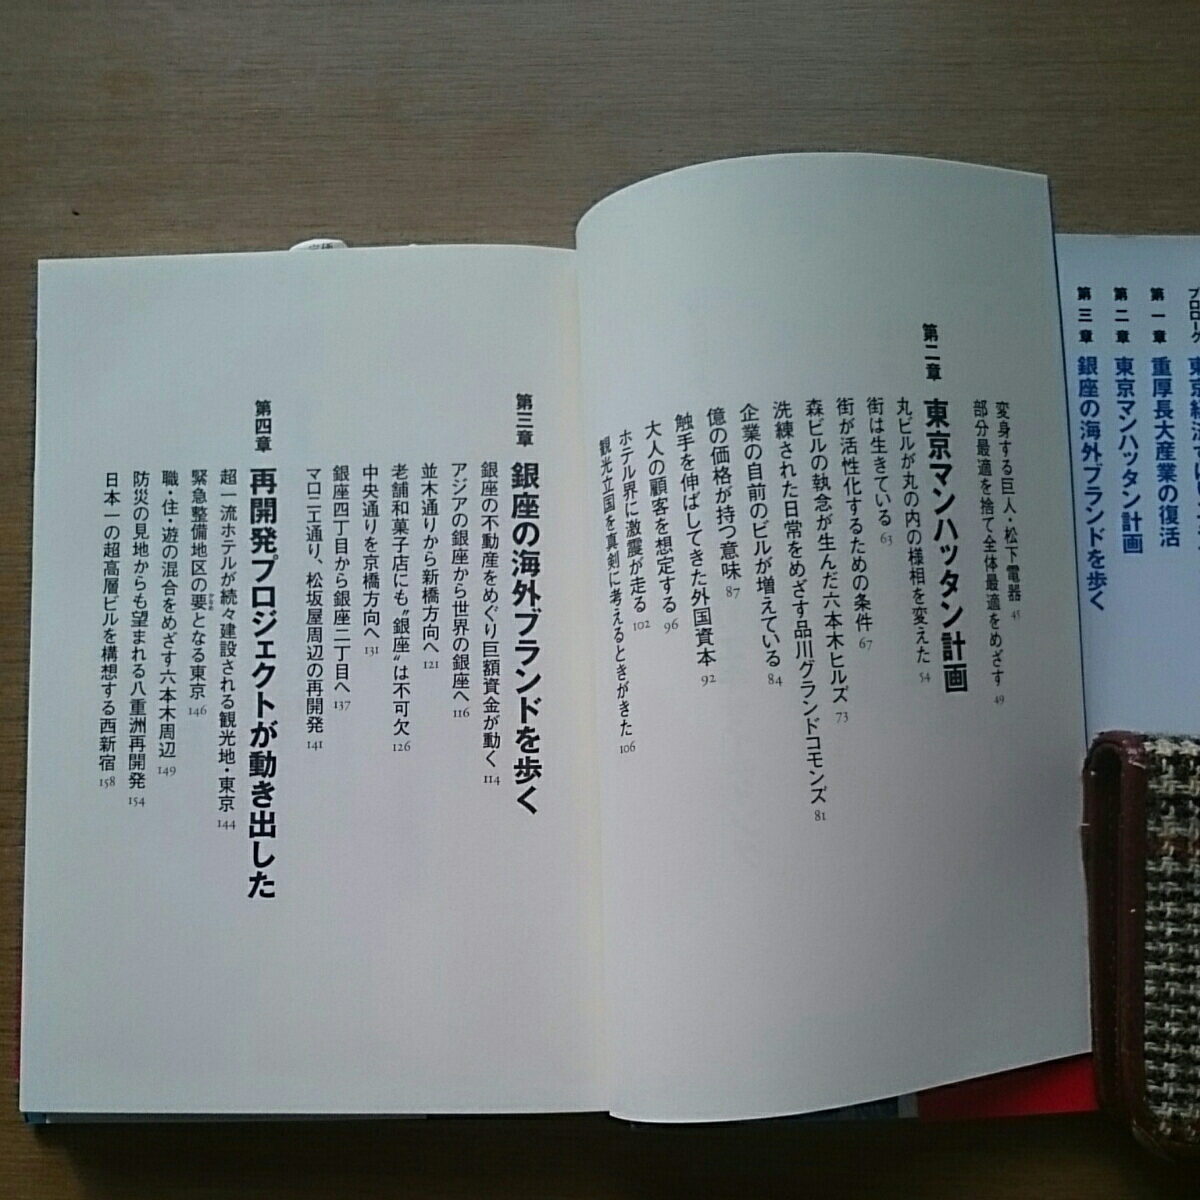 プロローグ
第一章 重厚長大産業の復活
第二章 東京マンハッタン計画
第三章 銀座の海外ブランドを歩く
変身する巨人・松下電器 45
部分最適を捨て全体最適をめざす 49
第二章 東京マンハッタン計画
丸ビルが丸の内の様相を変えた 54
街は生きている 63
街が活性化するための条件 67
森ビルの執念が生んだ六本木ヒルズ 73
洗練された日常をめざす品川グランドコモンズ 81
企業の自前のビルが増えている 84
億の価格が持つ意味 87
触手を伸ばしてきた外国資本 92
大人の顧客を想定する 96
ホテル界に激震が走る 102
観光立国を真剣に考えるときがきた 106
第三章 銀座の海外ブランドを歩く
銀座の不動産をめぐり巨額資金が動く 114
アジアの銀座から世界の銀座へ 116
並木通りから新橋方向へ 121
老舗和菓子店にも〝銀座〟は不可欠 126
中央通りを京橋方向へ 131
銀座四丁目から銀座二丁目へ 137
マロニエ通り、松坂屋周辺の再開発 141
第四章 再開発プロジェクトが動き出した
超一流ホテルが続々建設される観光地・東京 144
緊急整備地区の要となる東京 146
職・住・遊の混合をめざす六本木周辺 149
防災の見地からも望まれる八重洲再開発 154
日本一の超高層ビルを構想する西新宿 158